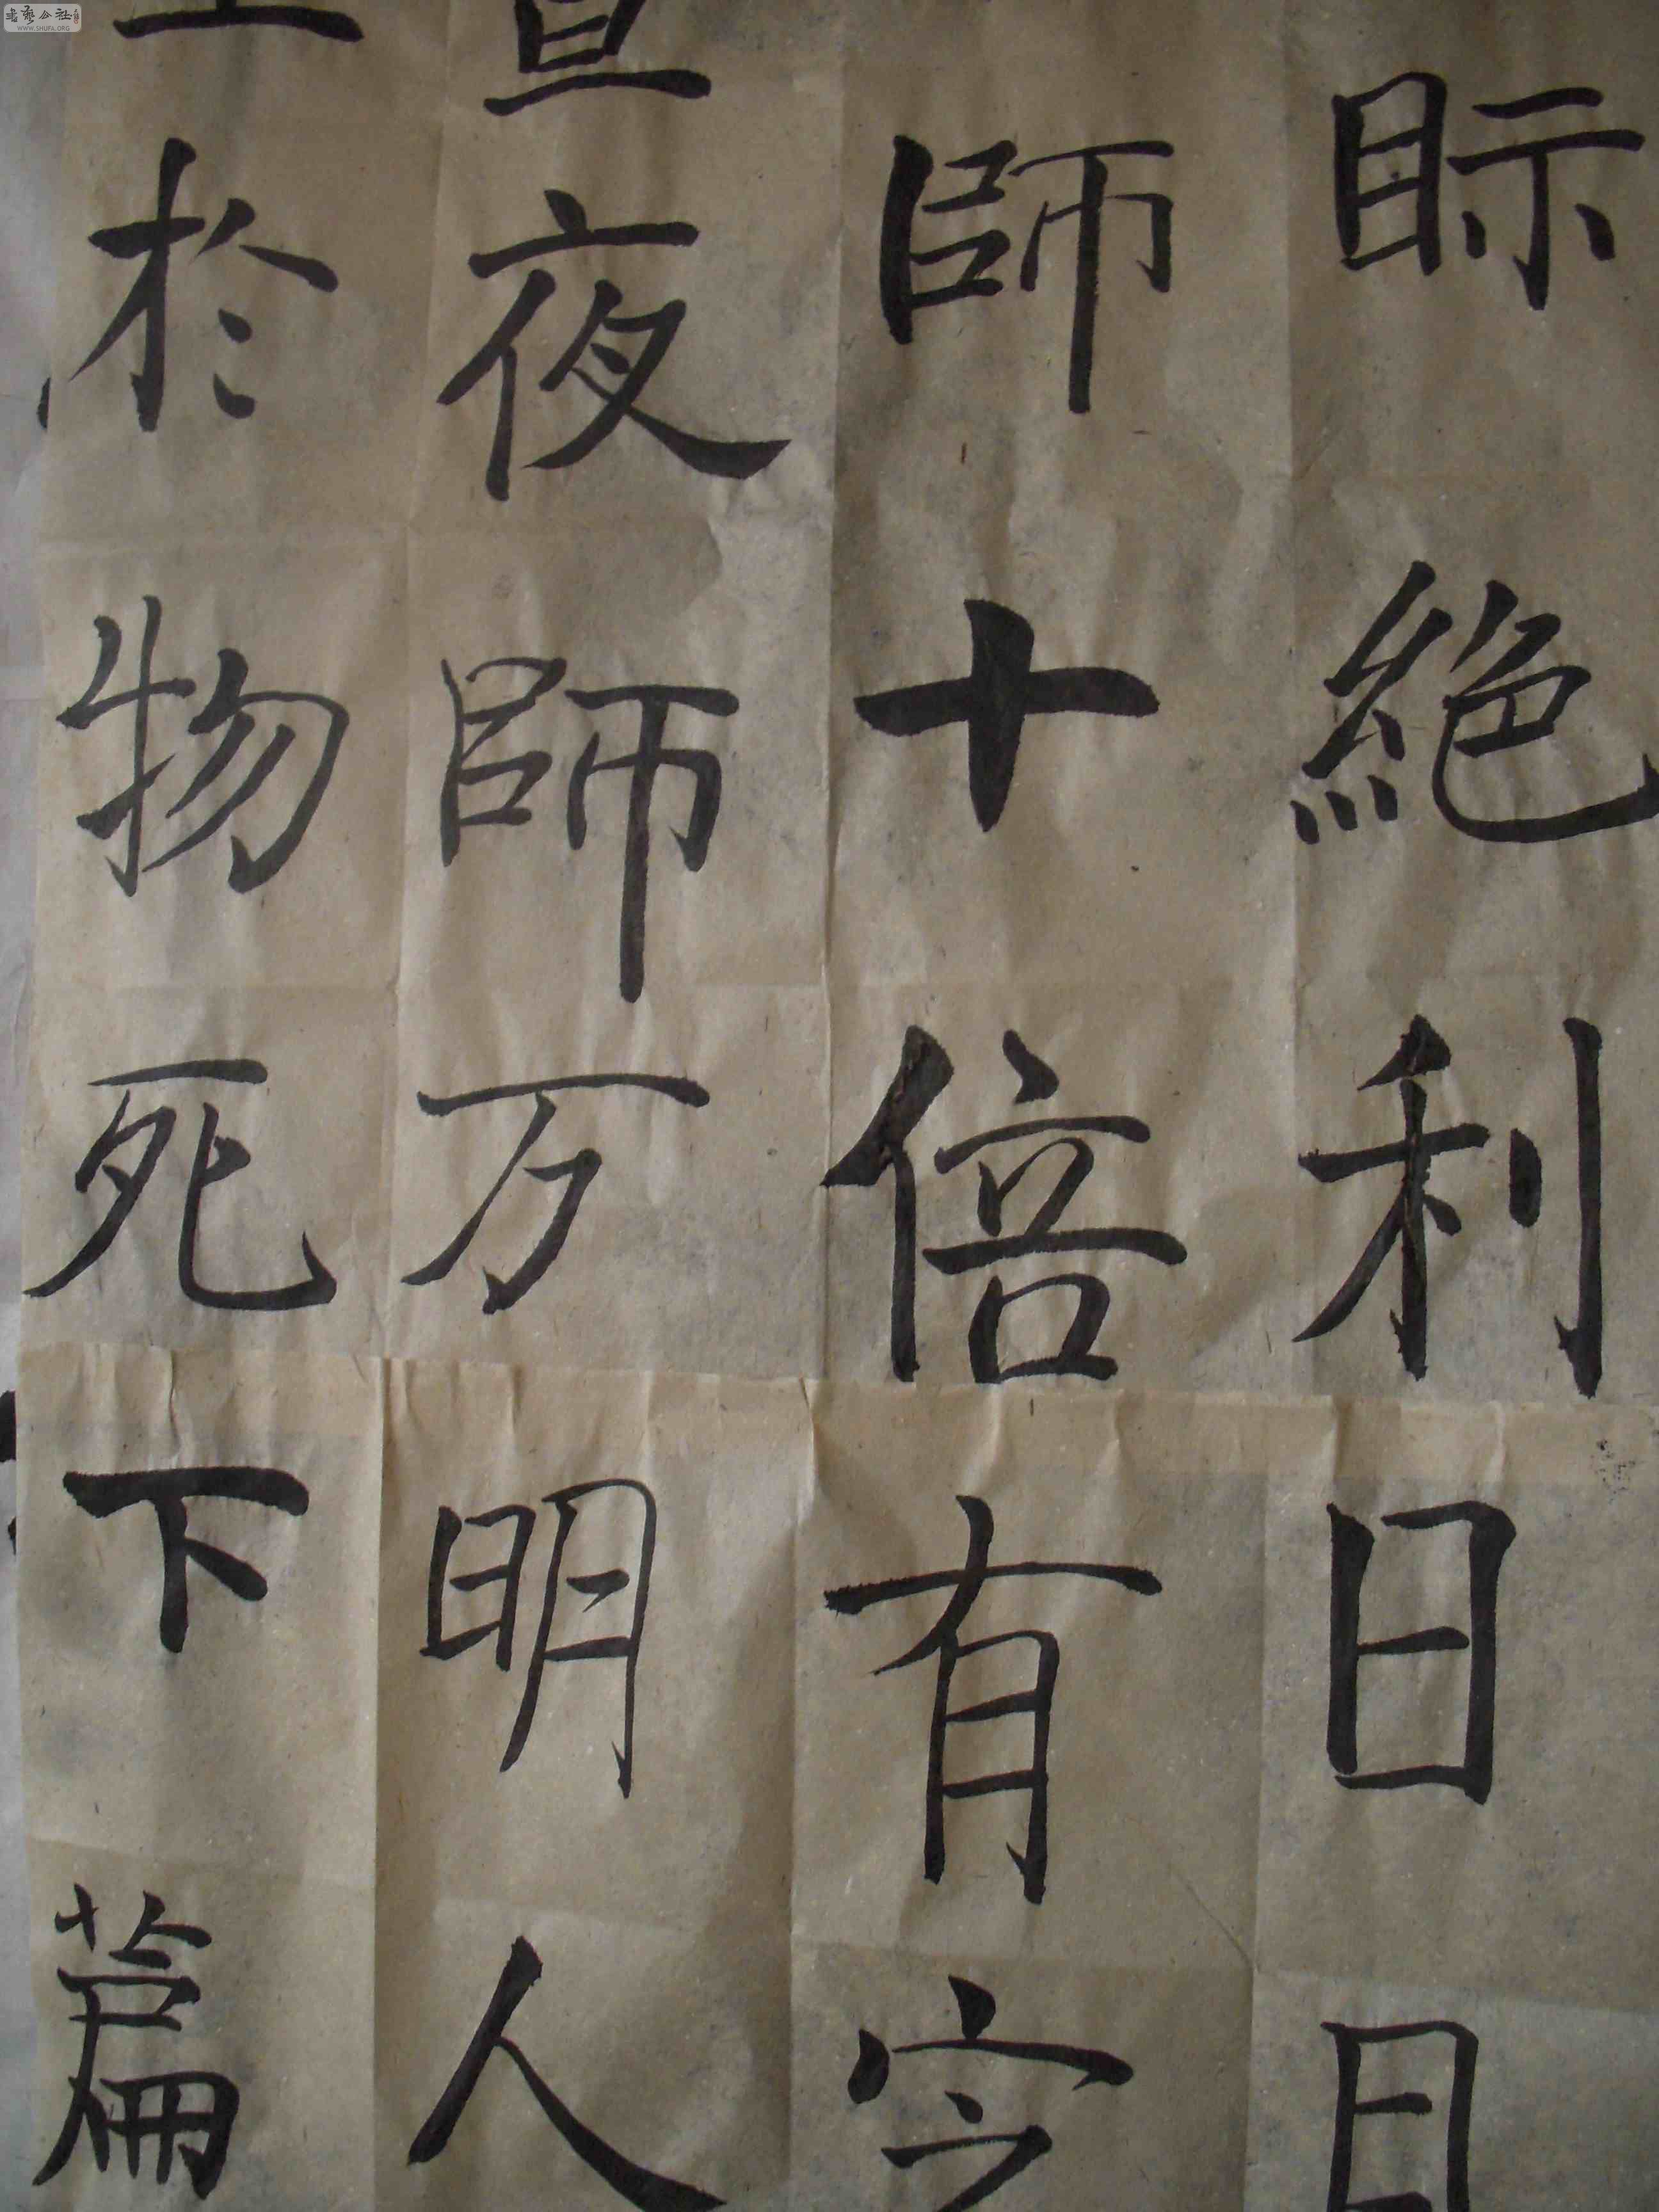 眎絕利日
師十倍有
夜師万明人
於物死下篇
書藝公社
WWW.SHUFA.ORG